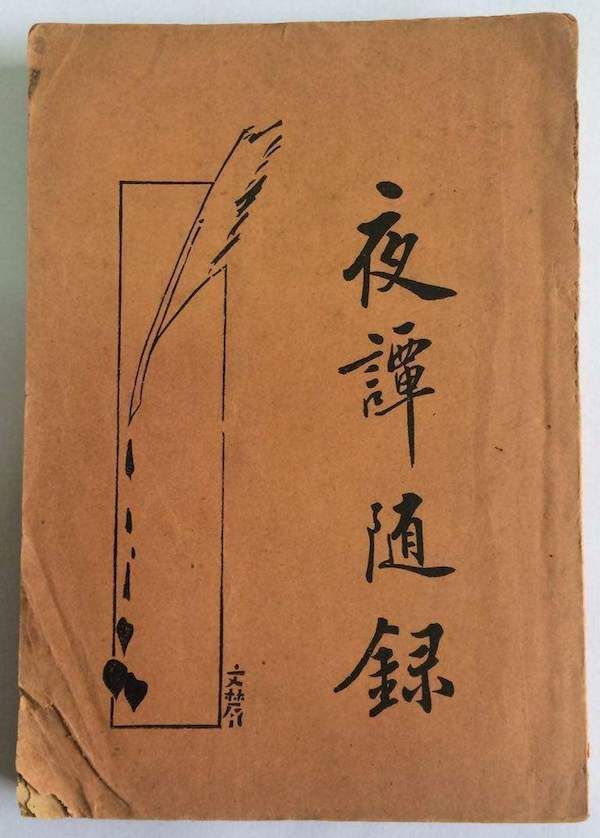 夜譚随録
文林